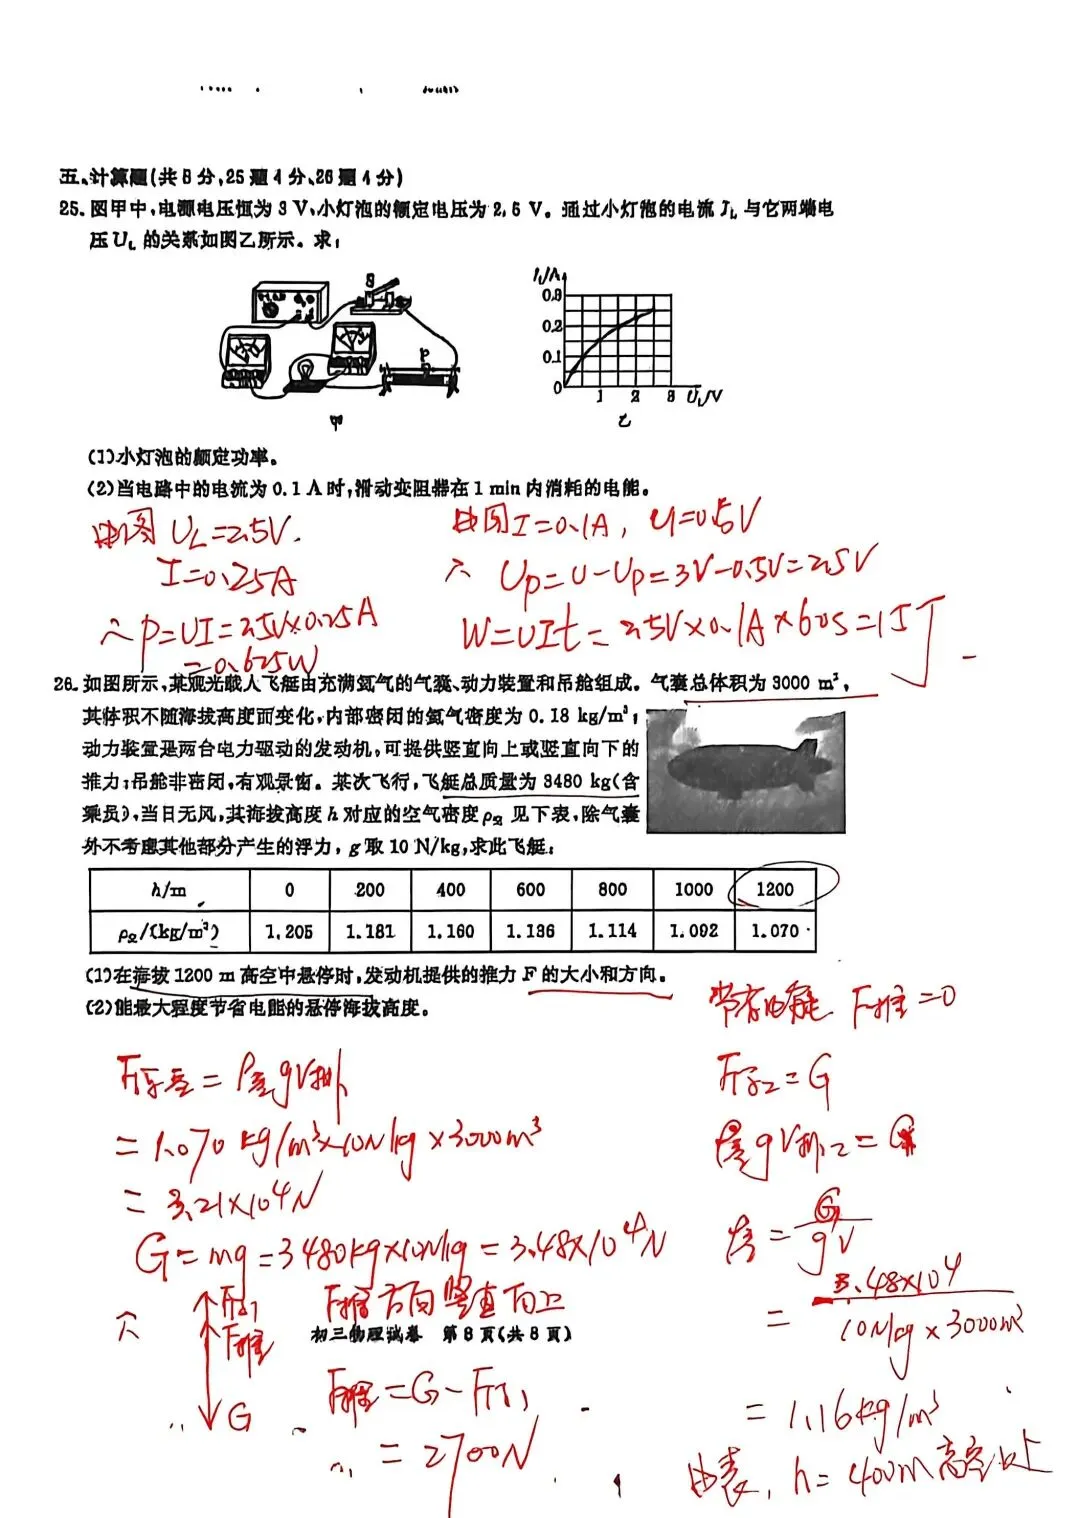 五、计算题(共8分,25题4分、26题4分)
25. 图甲中,电源电压恒为 3 V,小灯泡的额定电压为 2.5 V。通过小灯泡的电流 I_L 与它两端电
压 U_L 的关系如图乙所示。求:
S
P
甲
I_L/A
0.3
0.2
0.1
0
1 2 3 U_L/V
乙
(1)小灯泡的额定功率。
(2)当电路中的电流为 0.1 A 时,滑动变阻器在 1 min 内消耗的电能。
由图 U_L=2.5V.
I=0.25A
∴ P=UI=2.5V×0.25A
=0.625W
由图I=0.1A, U=0.5V
∴ U_P=U-U_P=3V-0.5V=2.5V
W=UIt=2.5V×0.1A×60s=15J
26. 如图所示,某观光载人飞艇由充满氦气的气囊、动力装置和吊舱组成。气囊总体积为 3000 m³,
其体积不随海拔高度而变化,内部密闭的氦气密度为 0.18 kg/m³;
动力装置是两台电力驱动的发动机,可提供竖直向上或竖直向下的
推力;吊舱非密闭,有观景窗。某次飞行,飞艇总质量为 3480 kg(含
乘员),当日无风,其海拔高度 h 对应的空气密度 ρ空 见下表,除气囊
外不考虑其他部分产生的浮力,g 取 10 N/kg,求此飞艇:
h/m 0 200 400 600 800 1000 1200
ρ空/(kg/m³) 1.205 1.181 1.160 1.136 1.114 1.092 1.070
(1)在海拔 1200 m 高空中悬停时,发动机提供的推力 F 的大小和方向。
(2)能最大程度节省电能的悬停海拔高度。
F浮1=ρ空gV排
=1.070kg/m³×10N/kg×3000m³
=3.21×10⁴N
G=mg=3480kg×10N/kg=3.48×10⁴N
∴ F浮1
F推
G
F推方向竖直向上
初三物理试卷 第8页(共8页)
F推=G-F浮1
=2700N
节省电能 F推=0
F浮2=G
ρ空gV排2=G
ρ空=G/gV
=3.48×10⁴/10N/kg×3000m³
=1.16kg/m³
由表, h=400m高空处